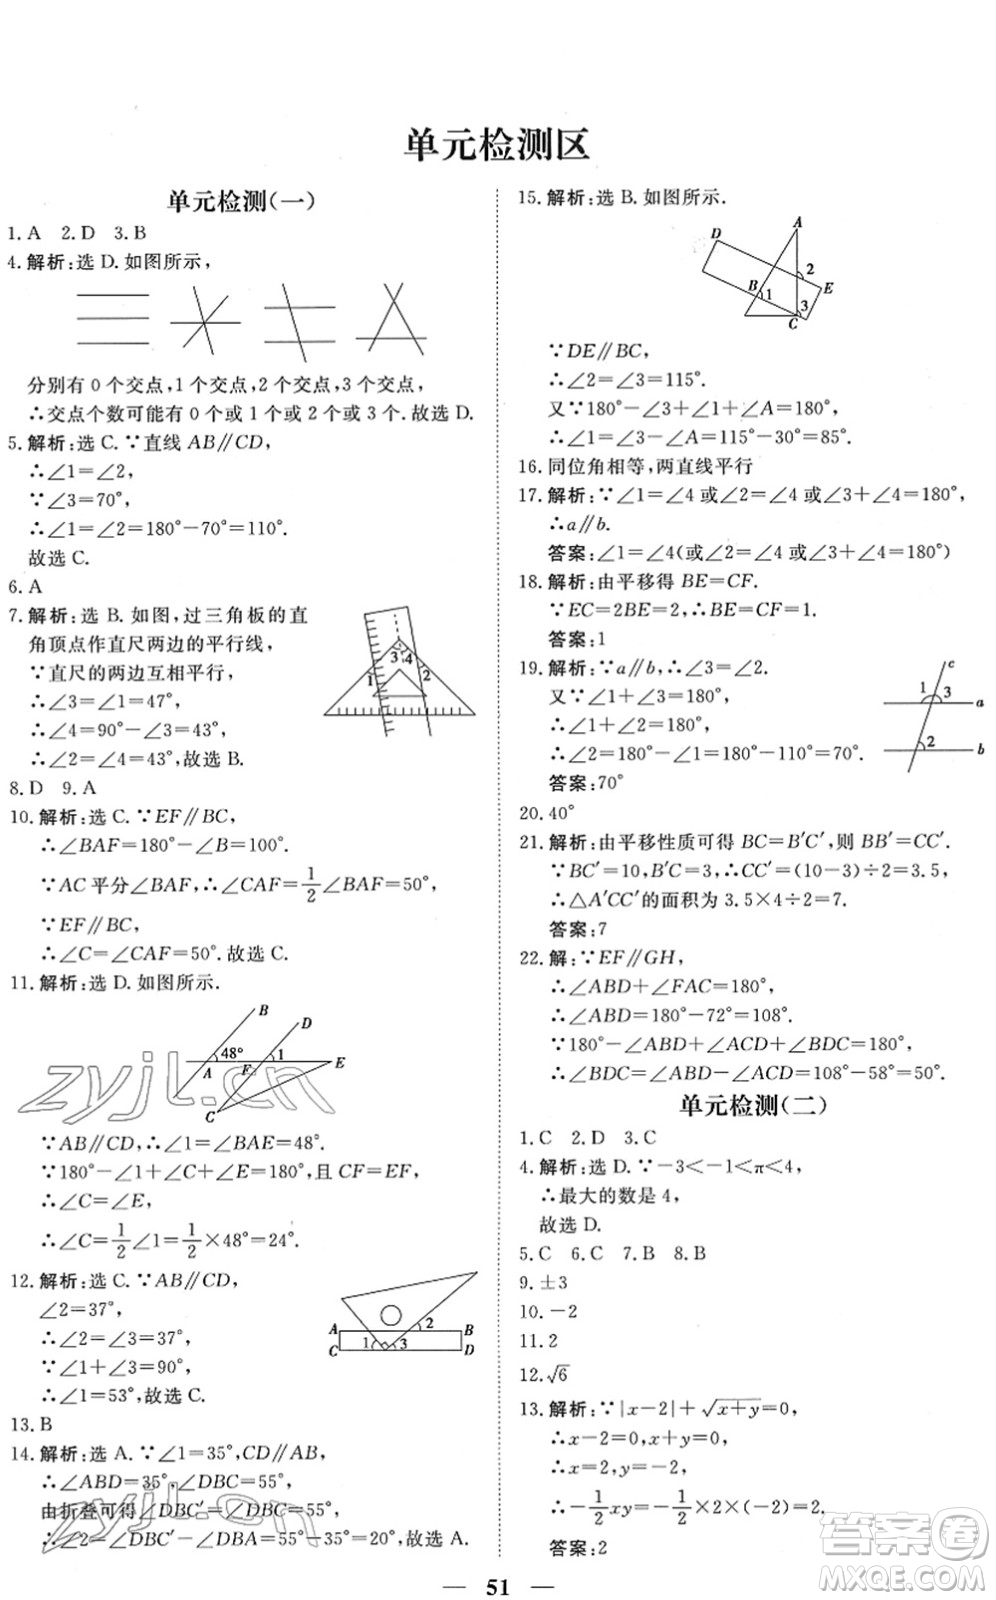 单元检测区
单元检测(一)
1. A  2. D  3. B
4. 解析:选 D. 如图所示,
分别有 0 个交点,1 个交点,2 个交点,3 个交点,
∴交点个数可能有 0 个或 1 个或 2 个或 3 个. 故选 D.
5. 解析:选 C. ∵直线 AB∥CD,
∴∠1=∠2,
∵∠3=70°,
∴∠1=∠2=180°-70°=110°.
故选 C.
6. A
7. 解析:选 B. 如图,过三角板的直
角顶点作直尺两边的平行线,
∵直尺的两边互相平行,
∴∠3=∠1=47°,
∴∠4=90°-∠3=43°,
∴∠2=∠4=43°,故选 B.
1
3
4
2
8. D  9. A
10. 解析:选 C. ∵EF∥BC,
∴∠BAF=180°-∠B=100°.
∵AC 平分∠BAF,∴∠CAF=1/2∠BAF=50°,
∵EF∥BC,
∴∠C=∠CAF=50°. 故选 C.
11. 解析:选 D. 如图所示.
B
D
48°
1
A
F
E
C
∵AB∥CD,∴∠1=∠BAE=48°.
∵180°-∠1+∠C+∠E=180°,且 CF=EF,
∴∠C=∠E,
∴∠C=1/2∠1=1/2×48°=24°.
12. 解析:选 C. ∵AB∥CD,
∠2=37°,
∴∠2=∠3=37°,
∵∠1+∠3=90°,
∴∠1=53°,故选 C.
A
2
B
C
1
3
D
13. B
14. 解析:选 A. ∵∠1=35°,CD∥AB,
∴∠ABD=35°,∠DBC=55°,
由折叠可得∠DBC′=∠DBC=55°,
∴∠2=∠DBC′-∠DBA=55°-35°=20°,故选 A.
15. 解析:选 B. 如图所示.
A
D
2
B
1
E
3
C
∵DE∥BC,
∴∠2=∠3=115°.
又∵180°-∠3+∠1+∠A=180°,
∴∠1=∠3-∠A=115°-30°=85°.
16. 同位角相等,两直线平行
17. 解析:∵∠1=∠4 或∠2=∠4 或∠3+∠4=180°,
∴a∥b.
答案:∠1=∠4(或∠2=∠4 或∠3+∠4=180°)
18. 解析:由平移得 BE=CF.
∵EC=2BE=2,∴BE=CF=1.
答案:1
19. 解析:∵a∥b,∴∠3=∠2.
又∵∠1+∠3=180°,
∴∠1+∠2=180°,
∴∠2=180°-∠1=180°-110°=70°.
答案:70°
c
1
3
a
2
b
20. 40°
21. 解析:由平移性质可得 BC=B′C′,则 BB′=CC′.
∵BC′=10,B′C=3,∴CC′=(10-3)÷2=3.5,
∴△A′CC′的面积为 3.5×4÷2=7.
答案:7
22. 解:∵EF∥GH,
∴∠ABD+∠FAC=180°,
∴∠ABD=180°-72°=108°.
∵180°-∠ABD+∠ACD+∠BDC=180°,
∴∠BDC=∠ABD-∠ACD=108°-58°=50°.
单元检测(二)
1. C  2. D  3. C
4. 解析:选 D. ∵-3<-1<π<4,
∴最大的数是 4,
故选 D.
5. C  6. C  7. B  8. B
9. ±3
10. -2
11. 2
12. √6
13. 解析:∵|x-2|+√(x+y)=0,
∴x-2=0,x+y=0,
∴x=2,y=-2,
∴-1/2xy=-1/2×2×(-2)=2.
答案:2
— 51 —
zyjl.cn
zyjl.cn
答案圈
MXQE.COM